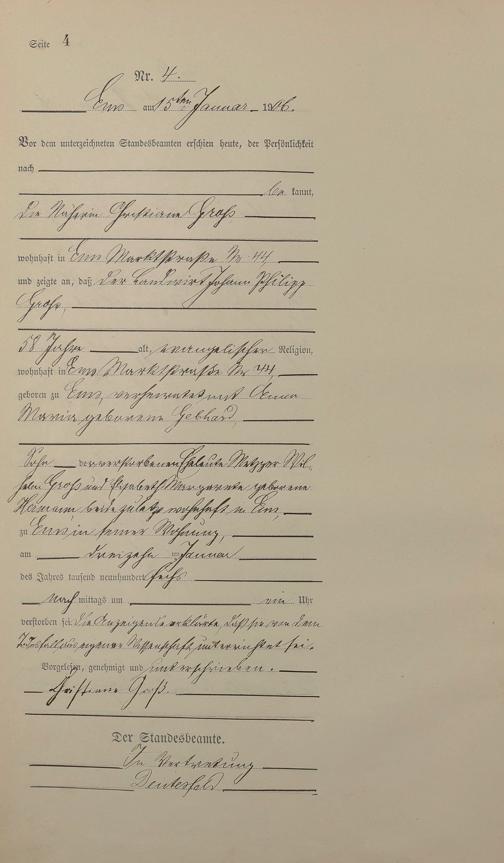 Seite 4
Nr. 4.
Ems am 15ten Januar 1906.
Vor dem unterzeichneten Standesbeamten erschien heute, der Persönlichkeit
nach
be kannt,
die Näherin Christiane Groß
wohnhaft in Ems Marktstraße Nr 44
und zeigte an, daß der Landwirt Johann Philipp
Groß,
58 Jahre alt, evangelischer Religion,
wohnhaft in Ems Marktstraße Nr 44,
geboren zu Ems, verheiratet mit Anna
Maria geborene Gebhard,
Sohn der verstorbenen Eheleute Metzger Wil-
helm Groß und Elisabeth Margarete geborene
Hamann beide zuletzt wohnhaft in Ems,
zu Ems in seiner Wohnung,
am dreizehn Januar
des Jahres tausend neunhundert sechs
nach mittags um ein Uhr
verstorben sei. Die Anzeigende erklärte, daß sie von dem
Todesfall aus eigener Wissenschaft unterrichtet sei.
Vorgelesen, genehmigt und unterschrieben.
Christiane Groß.
Der Standesbeamte.
In Vertretung